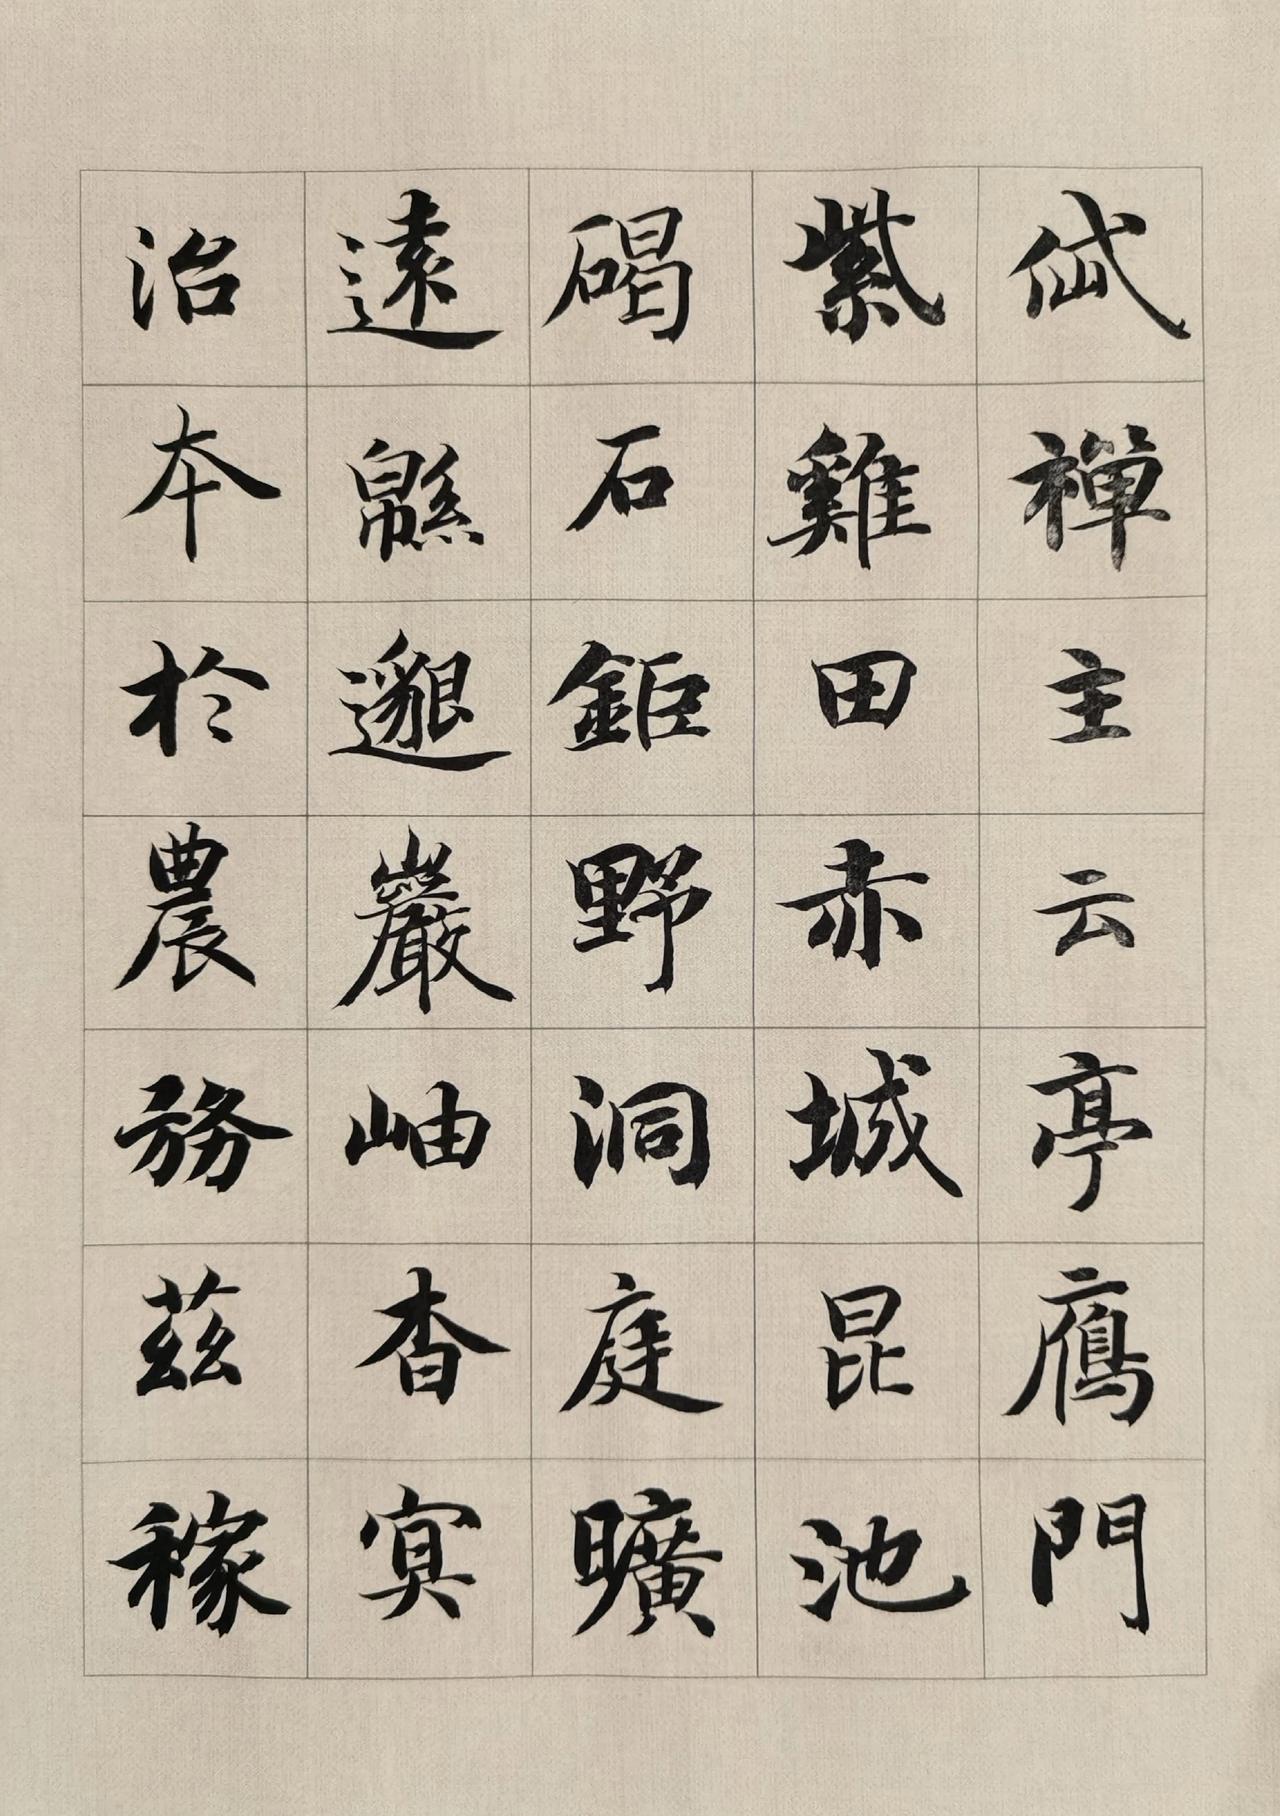 岱禪主云亭鴈門
紫雞田赤城昆池
碣石鉅野洞庭曠
遠緜邈巖岫杳冥
治本於農務茲稼